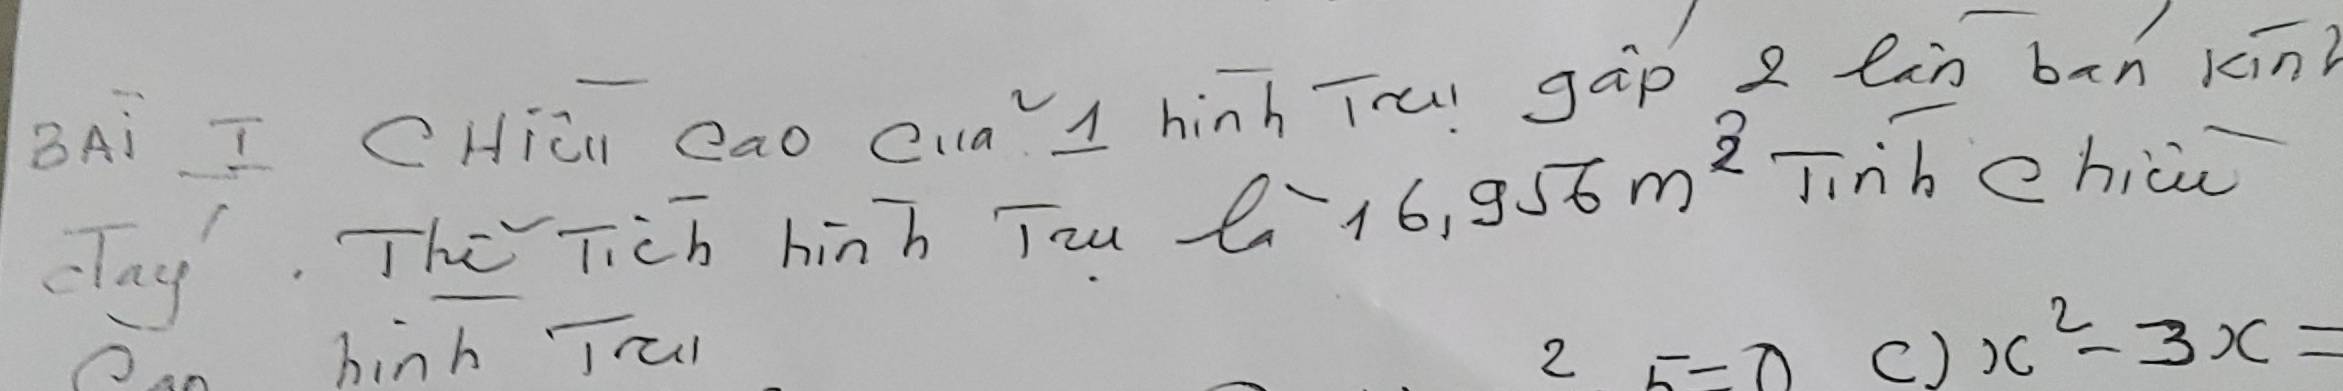 BÀI I Chiều cao của 1 hình Trụ gấp 2 lần bán kính
đáy. Thể Tích hình Trụ là 16,956 m³ Tính chiều
cao hình Trụ
2 5=0 c) x² - 3x =